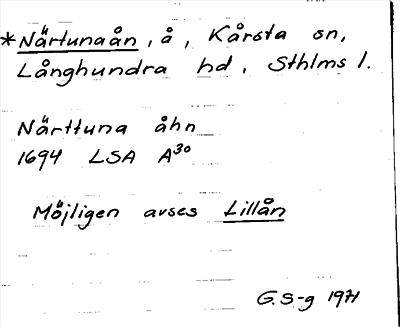 *Närtunaån, å, Kårsta sn,
Långhundra hd, Sthlms l.
Närttuna åhn
1694 LSA A³⁰
Möjligen avses Lillån
G.S-g 1971